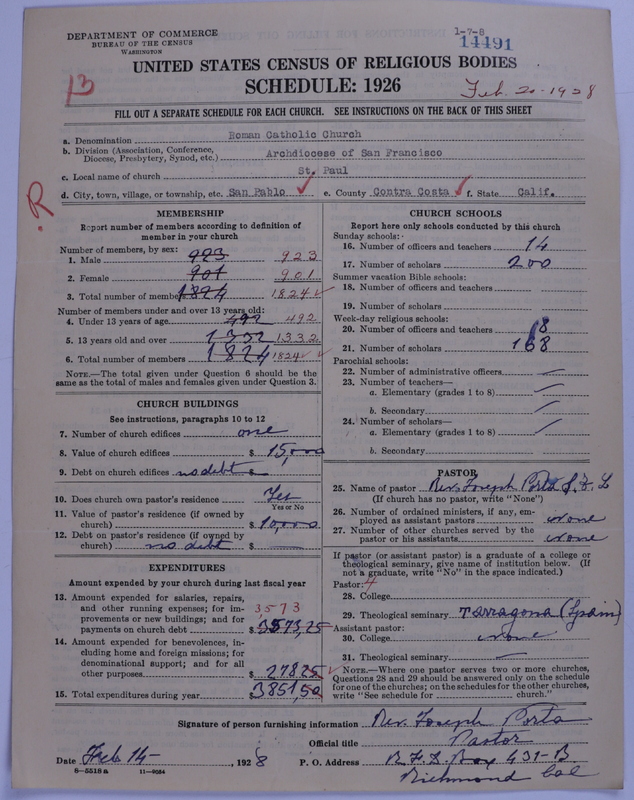 DEPARTMENT OF COMMERCE
BUREAU OF THE CENSUS
WASHINGTON
1-7-8
14491
UNITED STATES CENSUS OF RELIGIOUS BODIES
13
SCHEDULE: 1926
Feb. 20-1928
FILL OUT A SEPARATE SCHEDULE FOR EACH CHURCH. SEE INSTRUCTIONS ON THE BACK OF THIS SHEET
a. Denomination Roman Catholic Church
b. Division (Association, Conference, Diocese, Presbytery, Synod, etc.) Archdiocese of San Francisco
c. Local name of church St. Paul
d. City, town, village, or township, etc. San Pablo ✓ e. County Contra Costa ✓ f. State Calif.
R
MEMBERSHIP
Report number of members according to definition of
member in your church
Number of members, by sex:
1. Male 923 923
2. Female 901 901
3. Total number of members 1824 1824 ✓
Number of members under and over 13 years old:
4. Under 13 years of age 492 492
5. 13 years old and over 1332 1332
6. Total number of members 1824 1824 ✓ ✓
NOTE.—The total given under Question 6 should be the
same as the total of males and females given under Question 3.
CHURCH BUILDINGS
See instructions, paragraphs 10 to 12
7. Number of church edifices one
8. Value of church edifices $ 15,000
9. Debt on church edifices no debt $
10. Does church own pastor's residence Yes
Yes or No
11. Value of pastor's residence (if owned by
church) $ 10,000
12. Debt on pastor's residence (if owned by
church) no debt $
EXPENDITURES
Amount expended by your church during last fiscal year
13. Amount expended for salaries, repairs,
and other running expenses; for im- 3573
provements or new buildings; and for
payments on church debt $ 3573,25
14. Amount expended for benevolences, in-
cluding home and foreign missions; for
denominational support; and for all
other purposes $ 278,25
15. Total expenditures during year $ 3851,50
CHURCH SCHOOLS
Report here only schools conducted by this church
Sunday schools:
16. Number of officers and teachers 14
17. Number of scholars 200
Summer vacation Bible schools:
18. Number of officers and teachers
19. Number of scholars
Week-day religious schools:
20. Number of officers and teachers 8
21. Number of scholars 168
Parochial schools:
22. Number of administrative officers
23. Number of teachers—
a. Elementary (grades 1 to 8)
b. Secondary
24. Number of scholars—
a. Elementary (grades 1 to 8)
b. Secondary
PASTOR
25. Name of pastor Rev. Joseph Porta
(If church has no pastor, write "None")
26. Number of ordained ministers, if any, em-
ployed as assistant pastors none
27. Number of other churches served by the
pastor or his assistants none
If pastor (or assistant pastor) is a graduate of a college or
theological seminary, give name of institution below. (If
not a graduate, write "No" in the space indicated.)
Pastor: 4
28. College
29. Theological seminary Tarragona (Spain)
Assistant pastor:
30. College none
31. Theological seminary
✓ NOTE.—Where one pastor serves two or more churches,
Questions 28 and 29 should be answered only on the schedule
for one of the churches; on the schedules for the other churches,
write "See schedule for church."
Signature of person furnishing information Rev. Joseph Porta
Official title Pastor
Date Feb 14- , 1928 P. O. Address R.F.D. Box 431-B
Richmond Cal
8-5518a 11-9654